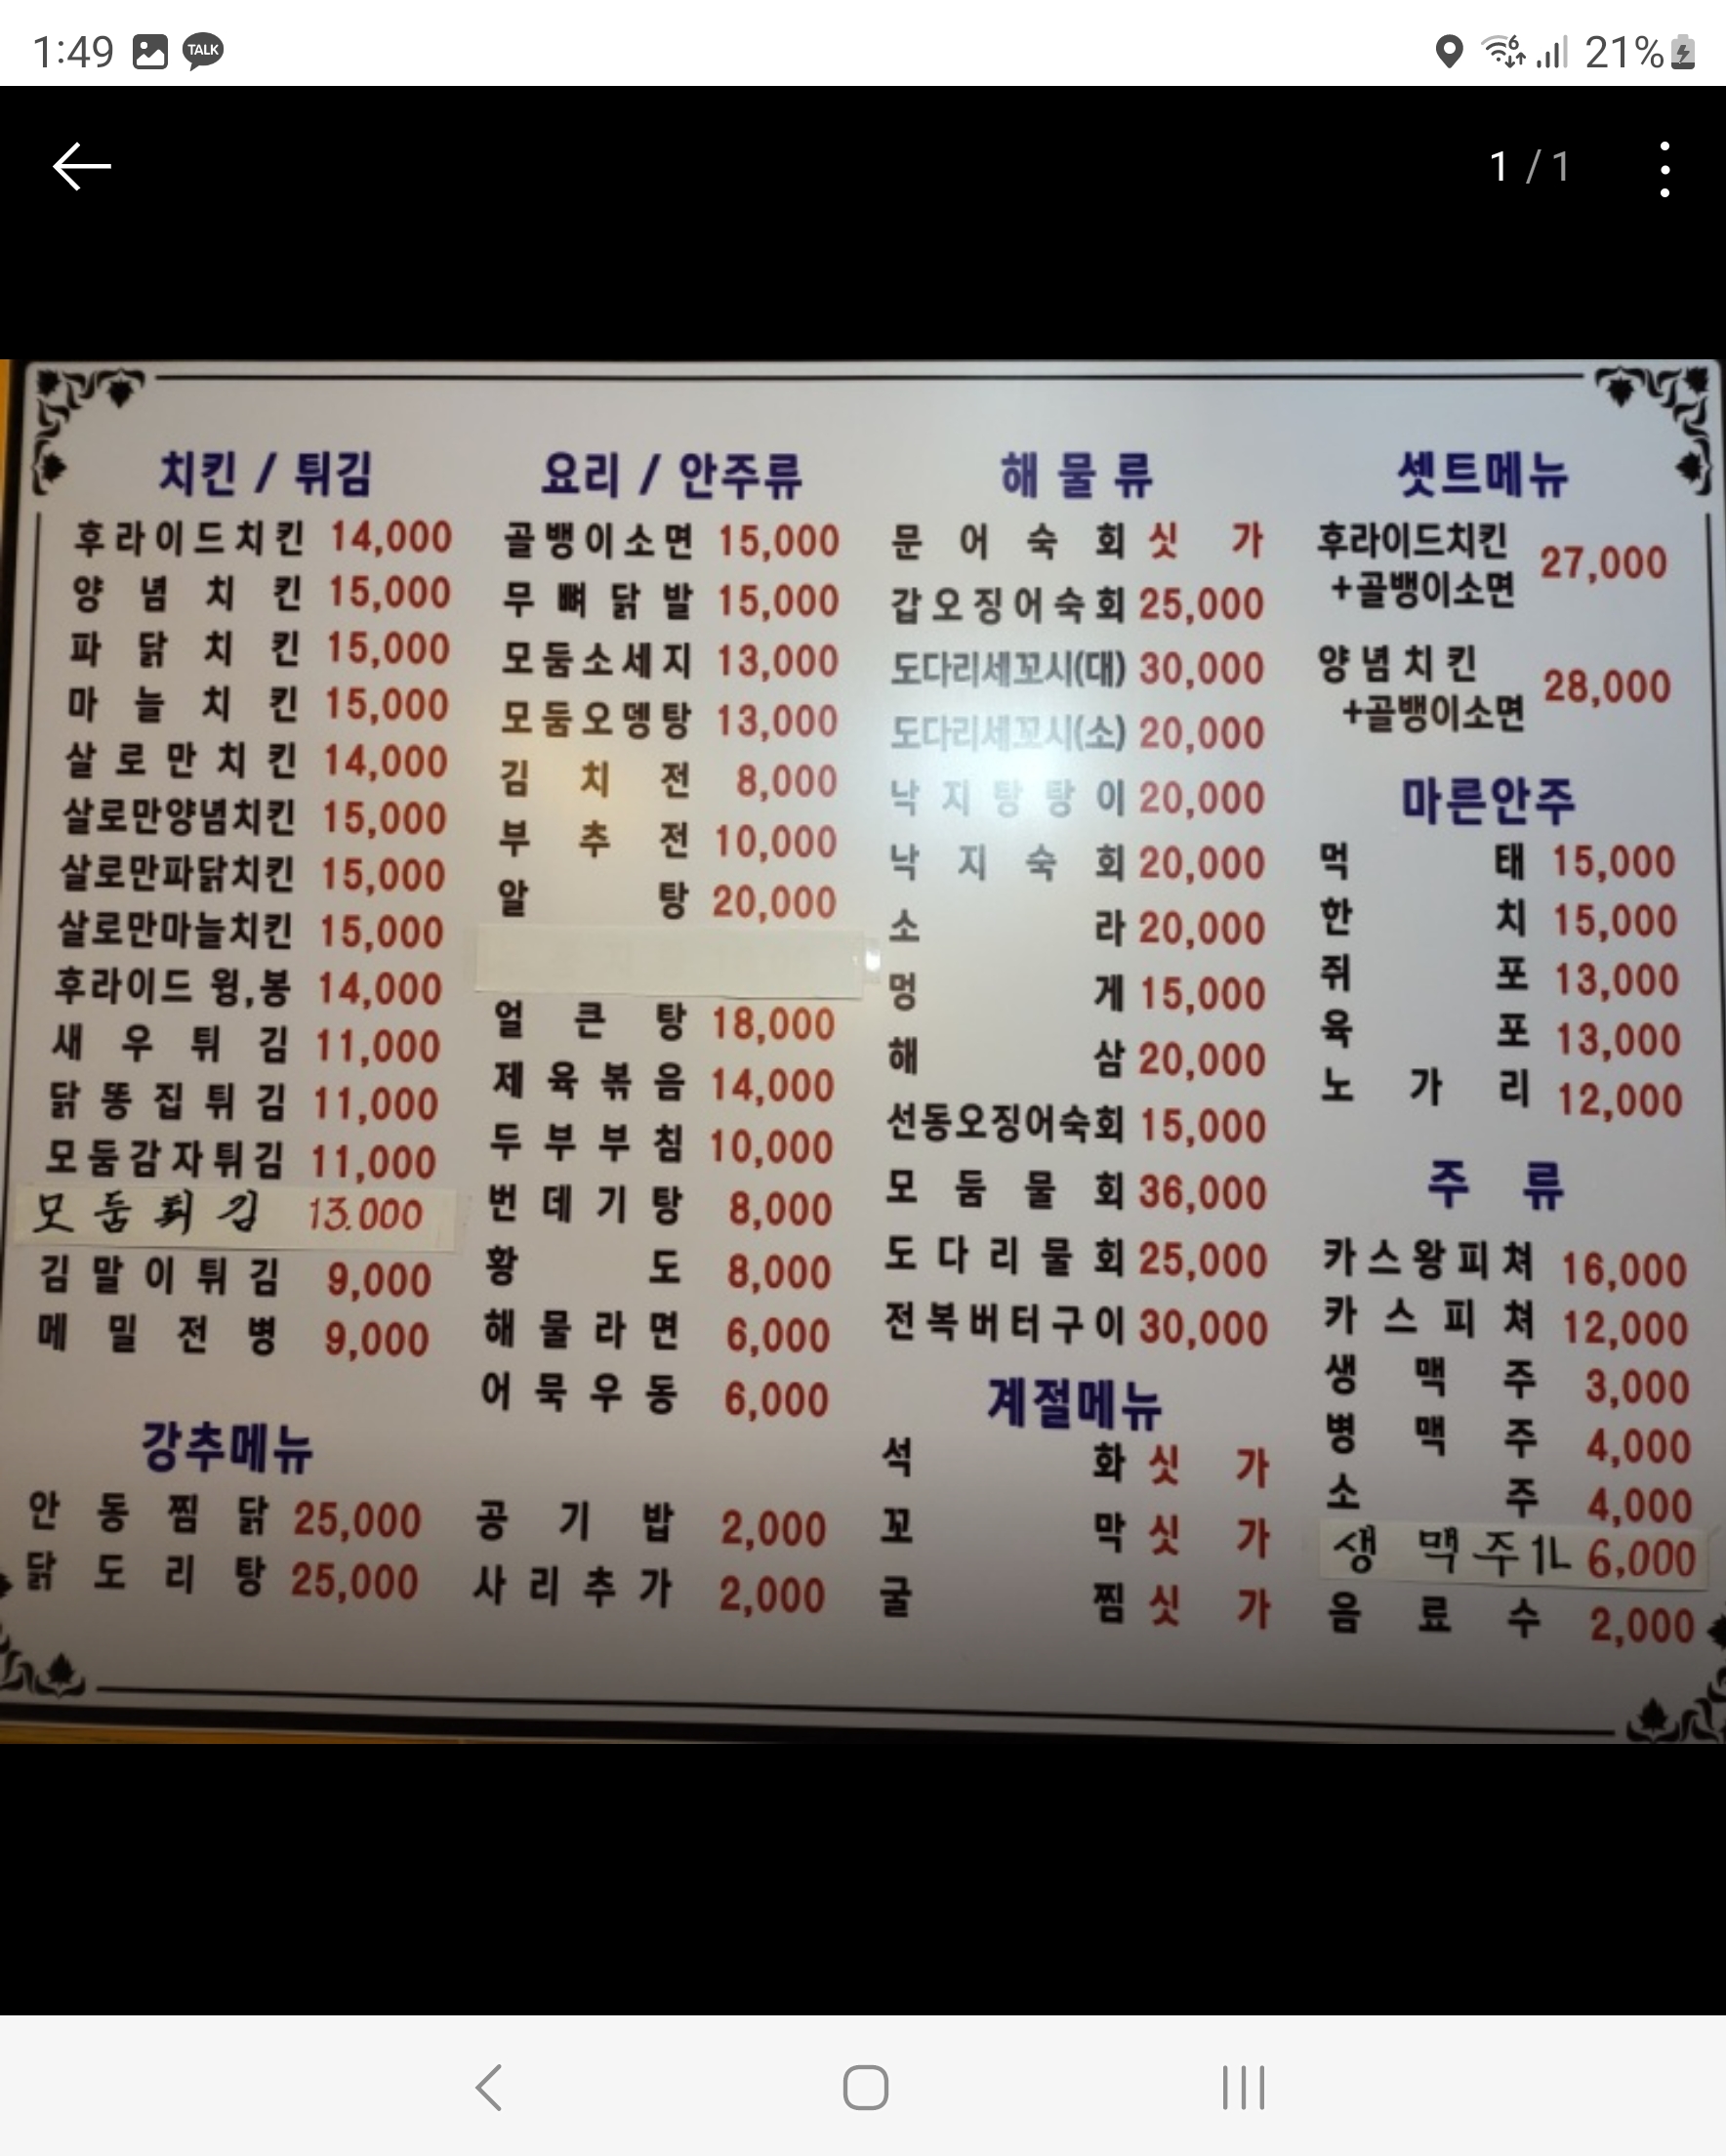 1:49 TALK 6 21%
1 / 1
치킨 / 튀김
후라이드치킨 14,000
양념치킨 15,000
파닭치킨 15,000
마늘치킨 15,000
살로만치킨 14,000
살로만양념치킨 15,000
살로만파닭치킨 15,000
살로만마늘치킨 15,000
후라이드 윙,봉 14,000
새우튀김 11,000
닭똥집튀김 11,000
모둠감자튀김 11,000
모둠튀김 13.000
김말이튀김 9,000
메밀전병 9,000
강추메뉴
안동찜닭 25,000
닭도리탕 25,000
요리 / 안주류
골뱅이소면 15,000
무뼈닭발 15,000
모둠소세지 13,000
모둠오뎅탕 13,000
김치전 8,000
부추전 10,000
알탕 20,000
얼큰탕 18,000
제육볶음 14,000
두부부침 10,000
번데기탕 8,000
황도 8,000
해물라면 6,000
어묵우동 6,000
공기밥 2,000
사리추가 2,000
해물류
문어숙회 싯가
갑오징어숙회 25,000
도다리세꼬시(대) 30,000
도다리세꼬시(소) 20,000
낙지탕탕이 20,000
낙지숙회 20,000
소라 20,000
멍게 15,000
해삼 20,000
선동오징어숙회 15,000
모둠물회 36,000
도다리물회 25,000
전복버터구이 30,000
계절메뉴
석화 싯가
꼬막 싯가
굴찜 싯가
셋트메뉴
후라이드치킨
+골뱅이소면 27,000
양념치킨
+골뱅이소면 28,000
마른안주
먹태 15,000
한치 15,000
쥐포 13,000
육포 13,000
노가리 12,000
주류
카스왕피쳐 16,000
카스피쳐 12,000
생맥주 3,000
병맥주 4,000
소주 4,000
생맥주1L 6,000
음료수 2,000